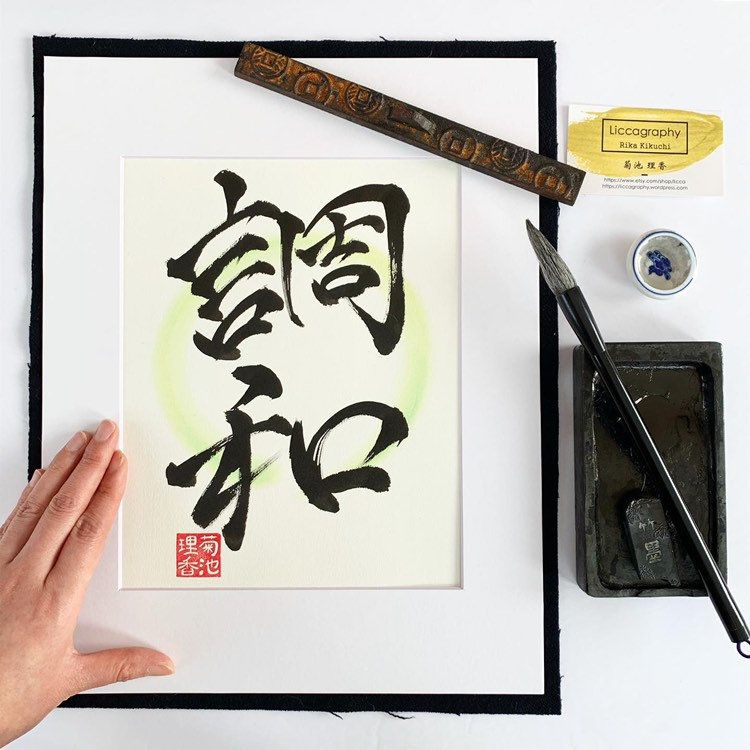 調
和
菊池
理香
Liccagraphy
Rika Kikuchi
菊池 理香
https://www.etsy.com/shop/licca
https://liccagraphy.wordpress.com
竹墨